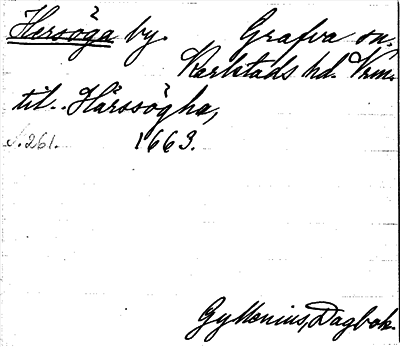 Hersöga by. Grafva sn,
Karlstads hd. Vrm.
til. Hårssögha,
s. 261. 1663.
Gyllenius, Dagbok.